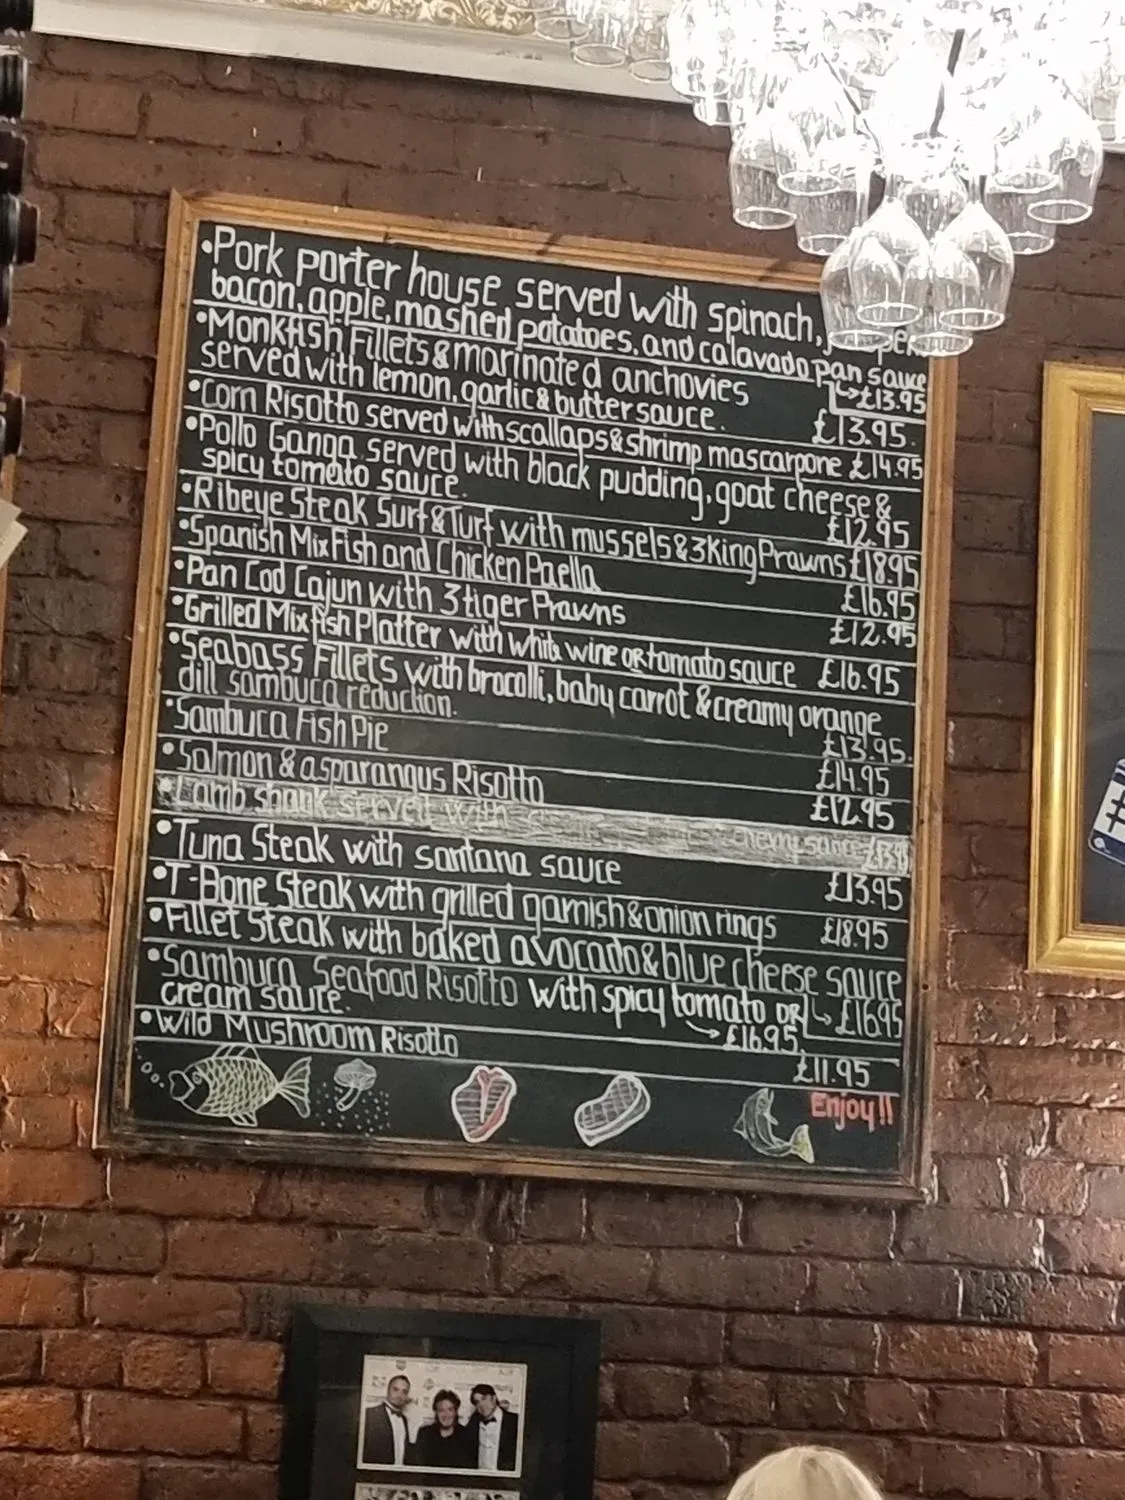 •Pork porter house served with spinach,
bacon, apple, mashed potatoes, and calavado pan sauce
£13.95
•Monkfish Fillets & marinated anchovies
served with lemon, garlic & butter sauce. £13.95.
•Corn Risotto served with scallaps & shrimp mascarpone £14.95
•Pollo Ganga served with black pudding, goat cheese &
spicy tomato sauce. £12.95
•Ribeye Steak Surf & Turf with mussels & 3 King Prawns £18.95
•Spanish Mix Fish and Chicken Paella £16.95
•Pan Cod Cajun with 3 tiger Prawns £12.95
•Grilled Mix fish Platter with white wine or tomato sauce £16.95
•Seabass Fillets with brocalli, baby carrot & creamy orange
dill sambuca reduction. £13.95.
•Sambuca Fish Pie £14.95
•Salmon & asparangus Risotto £12.95
•Lamb shank served with
•Tuna Steak with santana sauce £13.95
•T-Bone Steak with grilled garnish & onion rings £18.95
•Fillet Steak with baked avocado & blue cheese sauce
£16.95
•Sambuca Seafood Risotto with spicy tomato or
cream sauce. £16.95
•Wild Mushroom Risotto £11.95
Enjoy!!